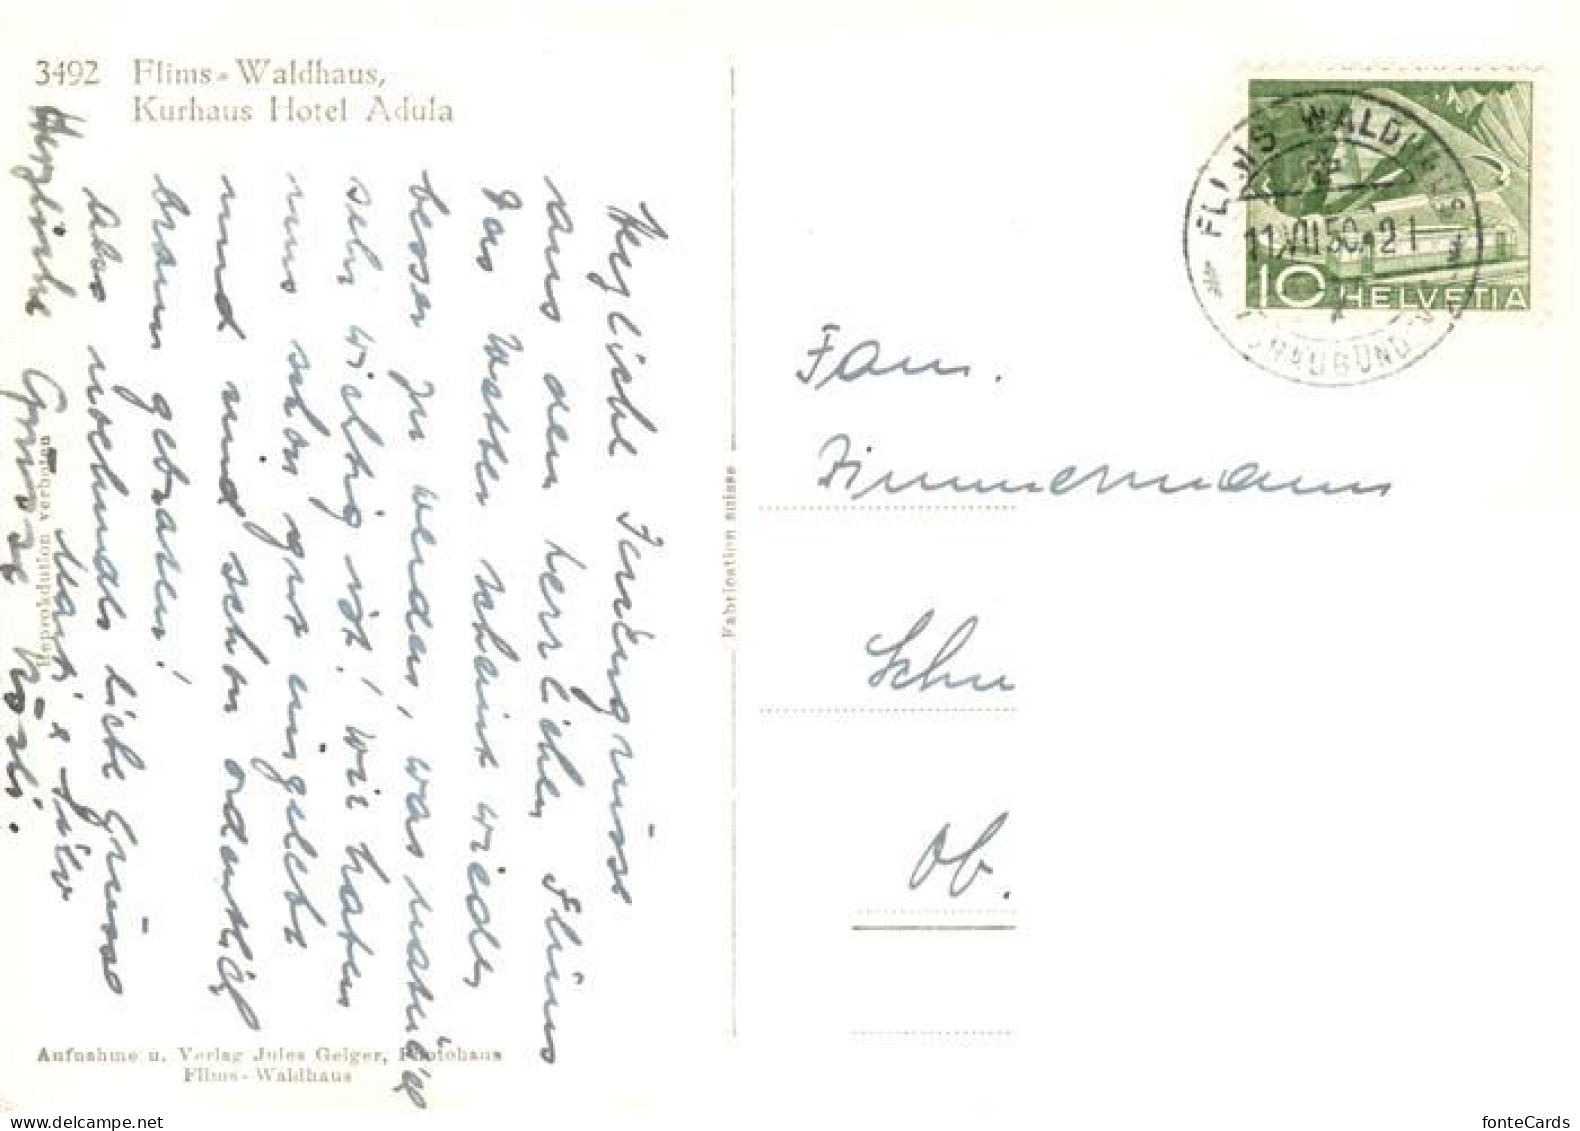 3492 Flims-Waldhaus,
Kurhaus Hotel Adula
Herzliche Feriengrüsse
aus dem herrlichen Flims
Das Wetter scheint wieder
besser zu werden, was natürlich
sehr wichtig ist! Wir haben
uns schon gut eingelebt
und sind schon ordentlich
braun gebraten!
Also nochmals liebe Grüsse
Marti &
Herzliche Grüsse
Reproduktion verboten
Aufnahme u. Verlag Jules Geiger, Photohaus
Flims-Waldhaus
Fabrication suisse
FLIMS WALDHAUS
11.VII.50.-21
(GRAUBÜNDEN)
10 HELVETIA
Fam.
Zimmermann
Schu
Ob.
delcampe.net
fonteCards